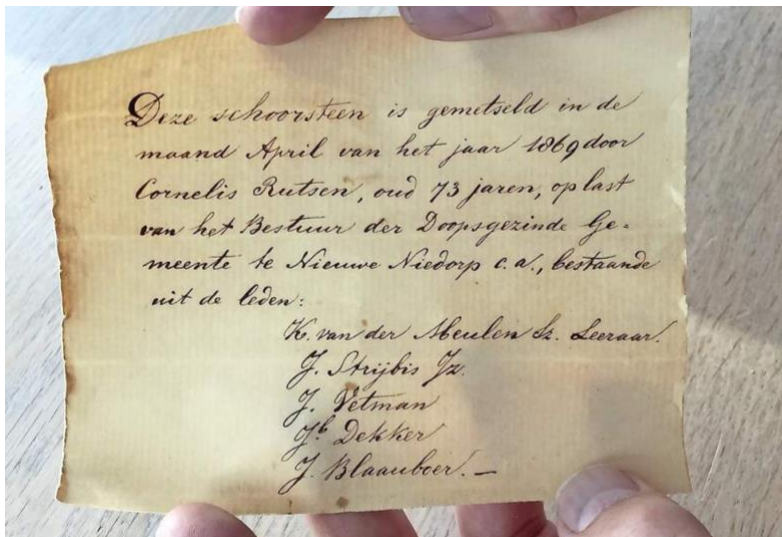 Deze schoorsteen is gemetseld in de
maand April van het jaar 1869 door
Cornelis Rutsen, oud 73 jaren, op last
van het Bestuur der Doopsgezinde Ge=
meente te Nieuwe Niedorp c.a., bestaande
uit de leden:
K. van der Meulen Sz. Leeraar.
J. Strijbis Jz.
J. Vetman
Jb Dekker
J. Blaauboer. —